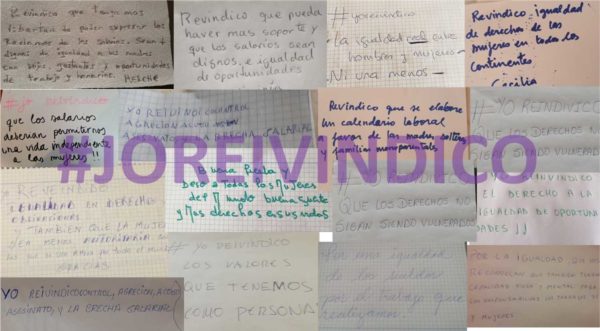 Revindico que tengamos
libertad
Reclamos de los Salarios. Sean
dignos de igualdad a los nombres
sus hijos, gestantes, y oportunidades
de trabajo y honorarios.
Revindico que pueda
haver mas soporte y
que los salarios sean
dignos, e igualdad
de oportunidades
#yoreivindico
-La igualdad real entre
hombres y mujeres-
-Ni una menos-
Revindico igualdad
de derechos de las
mujeres en todos los
continentes.
Cecilia
#jo reivindico
que los salarios
deberían permitirnos
una vida independiente
a las mujeres !!
YO REIVINDICO CONTROL
AGRECION ACOSO
ASESINATO Y LA BRECHA SALARIAL
Revindico que se elabore
un calendario laboral
a favor de las madres solteras
y familias monoparentales
#YO REINDIVICO
QUE LOS DERECHOS NO
SIGAN SIENDO VULNERADOS
#JOREIVINDICO
REVINDICO
IGUALDAD EN DERECHOS
OBLIGACIONES.
TAMBIEN QUE LA MUJER
SEA MENOS
GRACIAS
Buena fiesta y
Deseo a Todas los Mujeres
del Mundo buena
y Mas derechos en sus vidas
QUE LOS DERECHOS NO
SIGAN SIENDO VULNERADOS
YO REINVINDICO
EL DERECHO A LA
IGUALDAD DE OPORTUNI
DADES
YO REIVINDICO CONTROL, AGRECION, ACOSO
ASESINATO, Y LA BRECHA SALARIAL
# YO REIVINDICO
LOS VALORES
QUE TENEMOS
COMO PERSONA
Por una igualdad
de los sueldos
por el trabajo que
realizamos.
POR LA IGUALDAD, QUE NOS
RECONOZCAN QUE TAMBIEN TENEMOS
CAPACIDAD FISICA Y MENTAL PARA
Y MUJERES